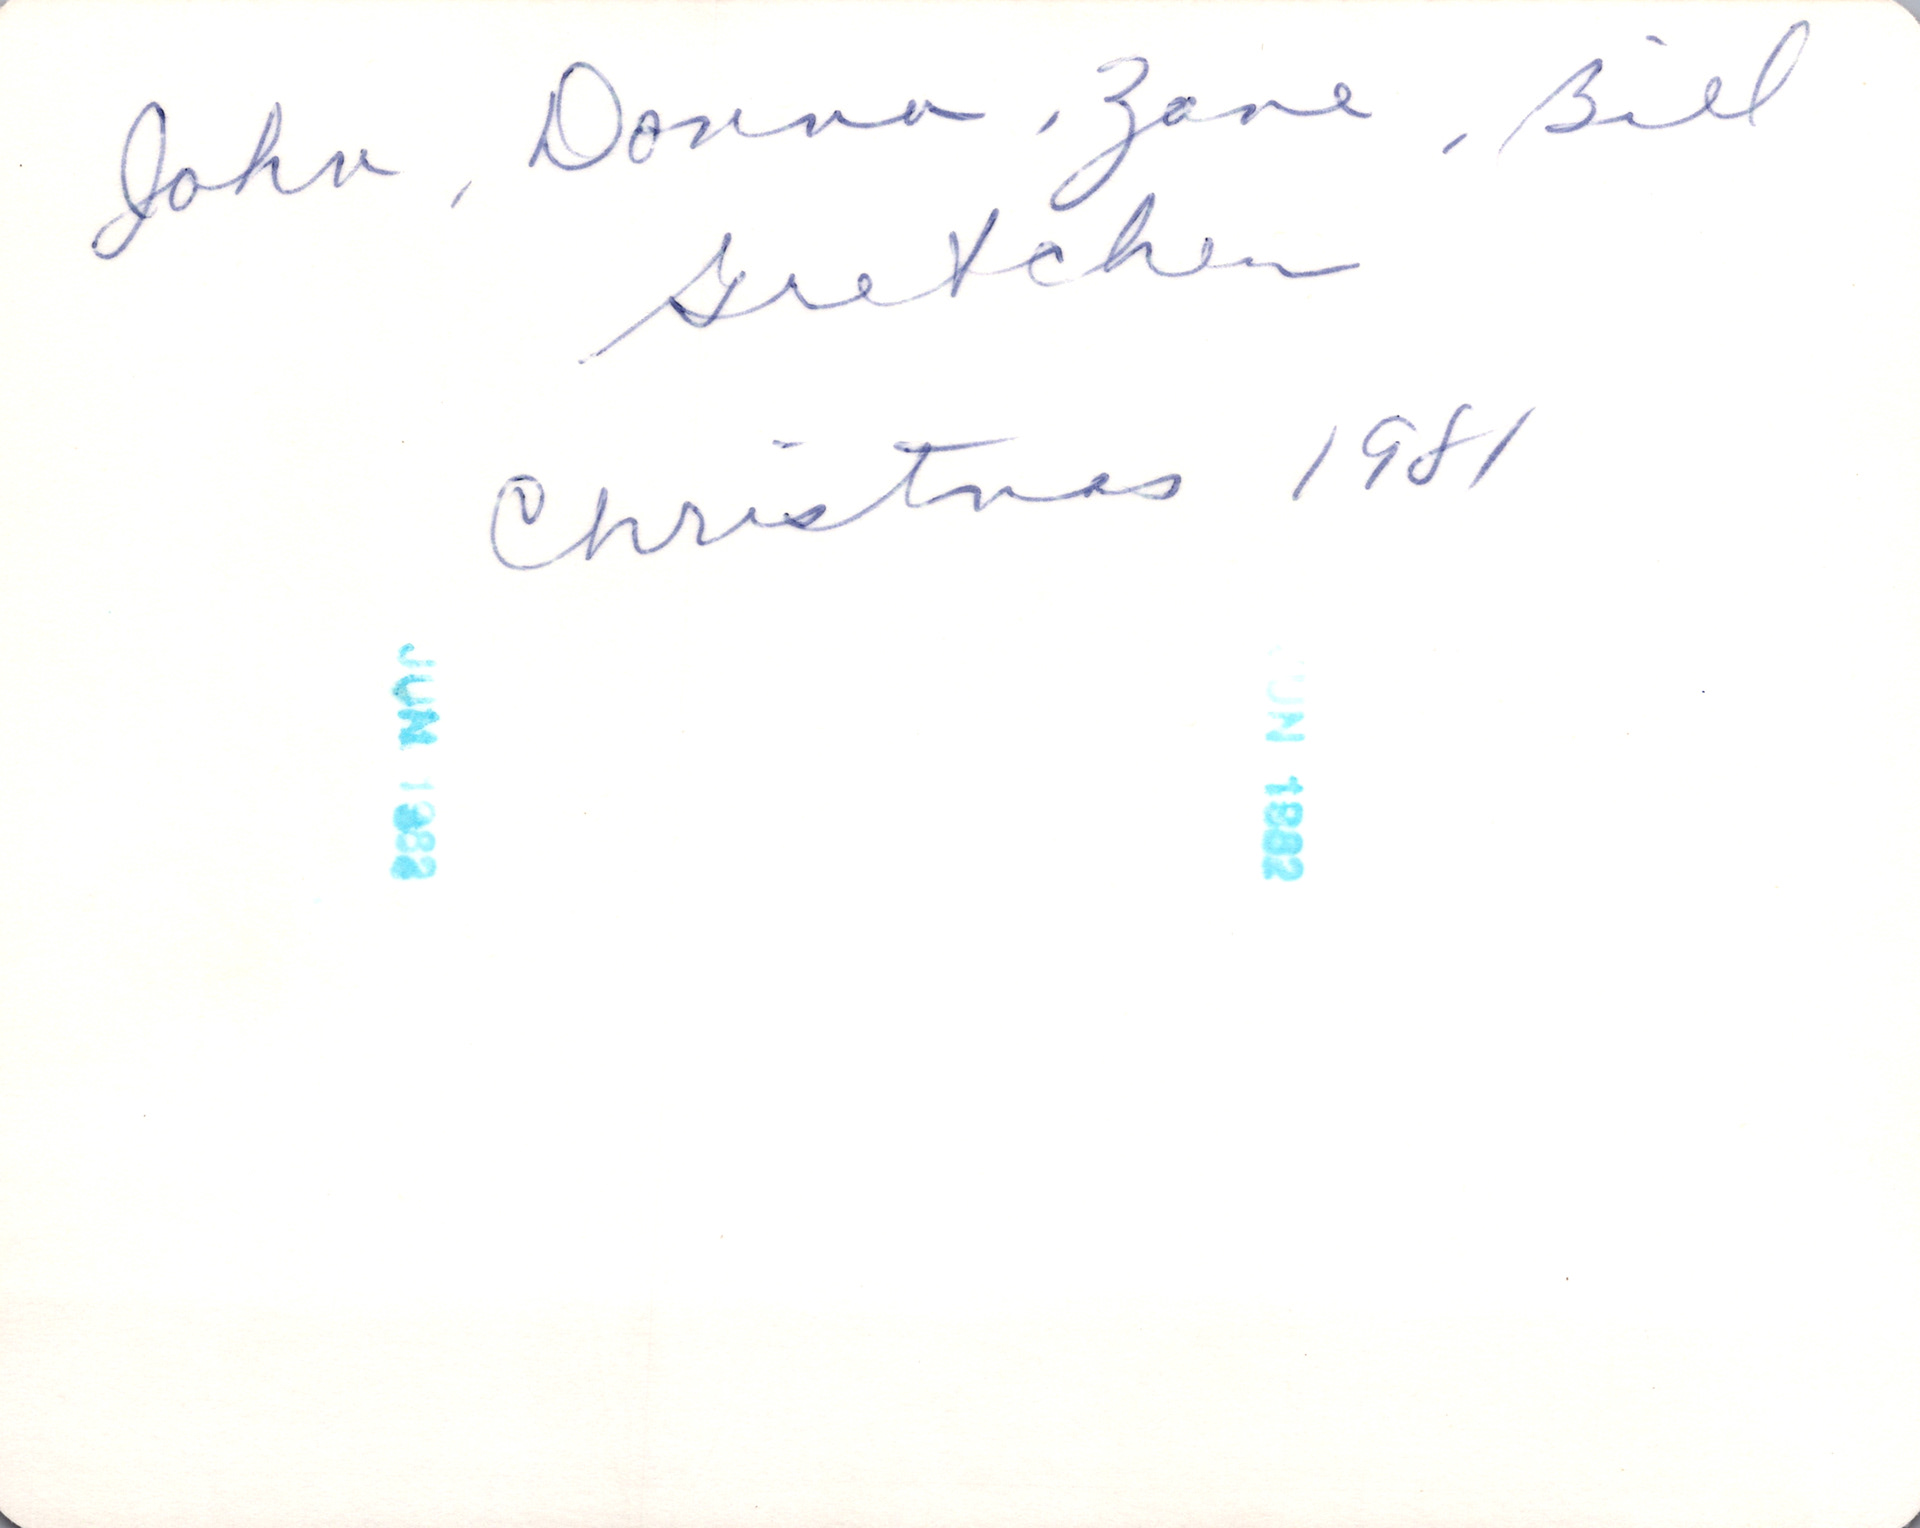 John, Donna, Zane, Bill
Gretchen
Christmas 1981
JUN 1982
JUN 1982